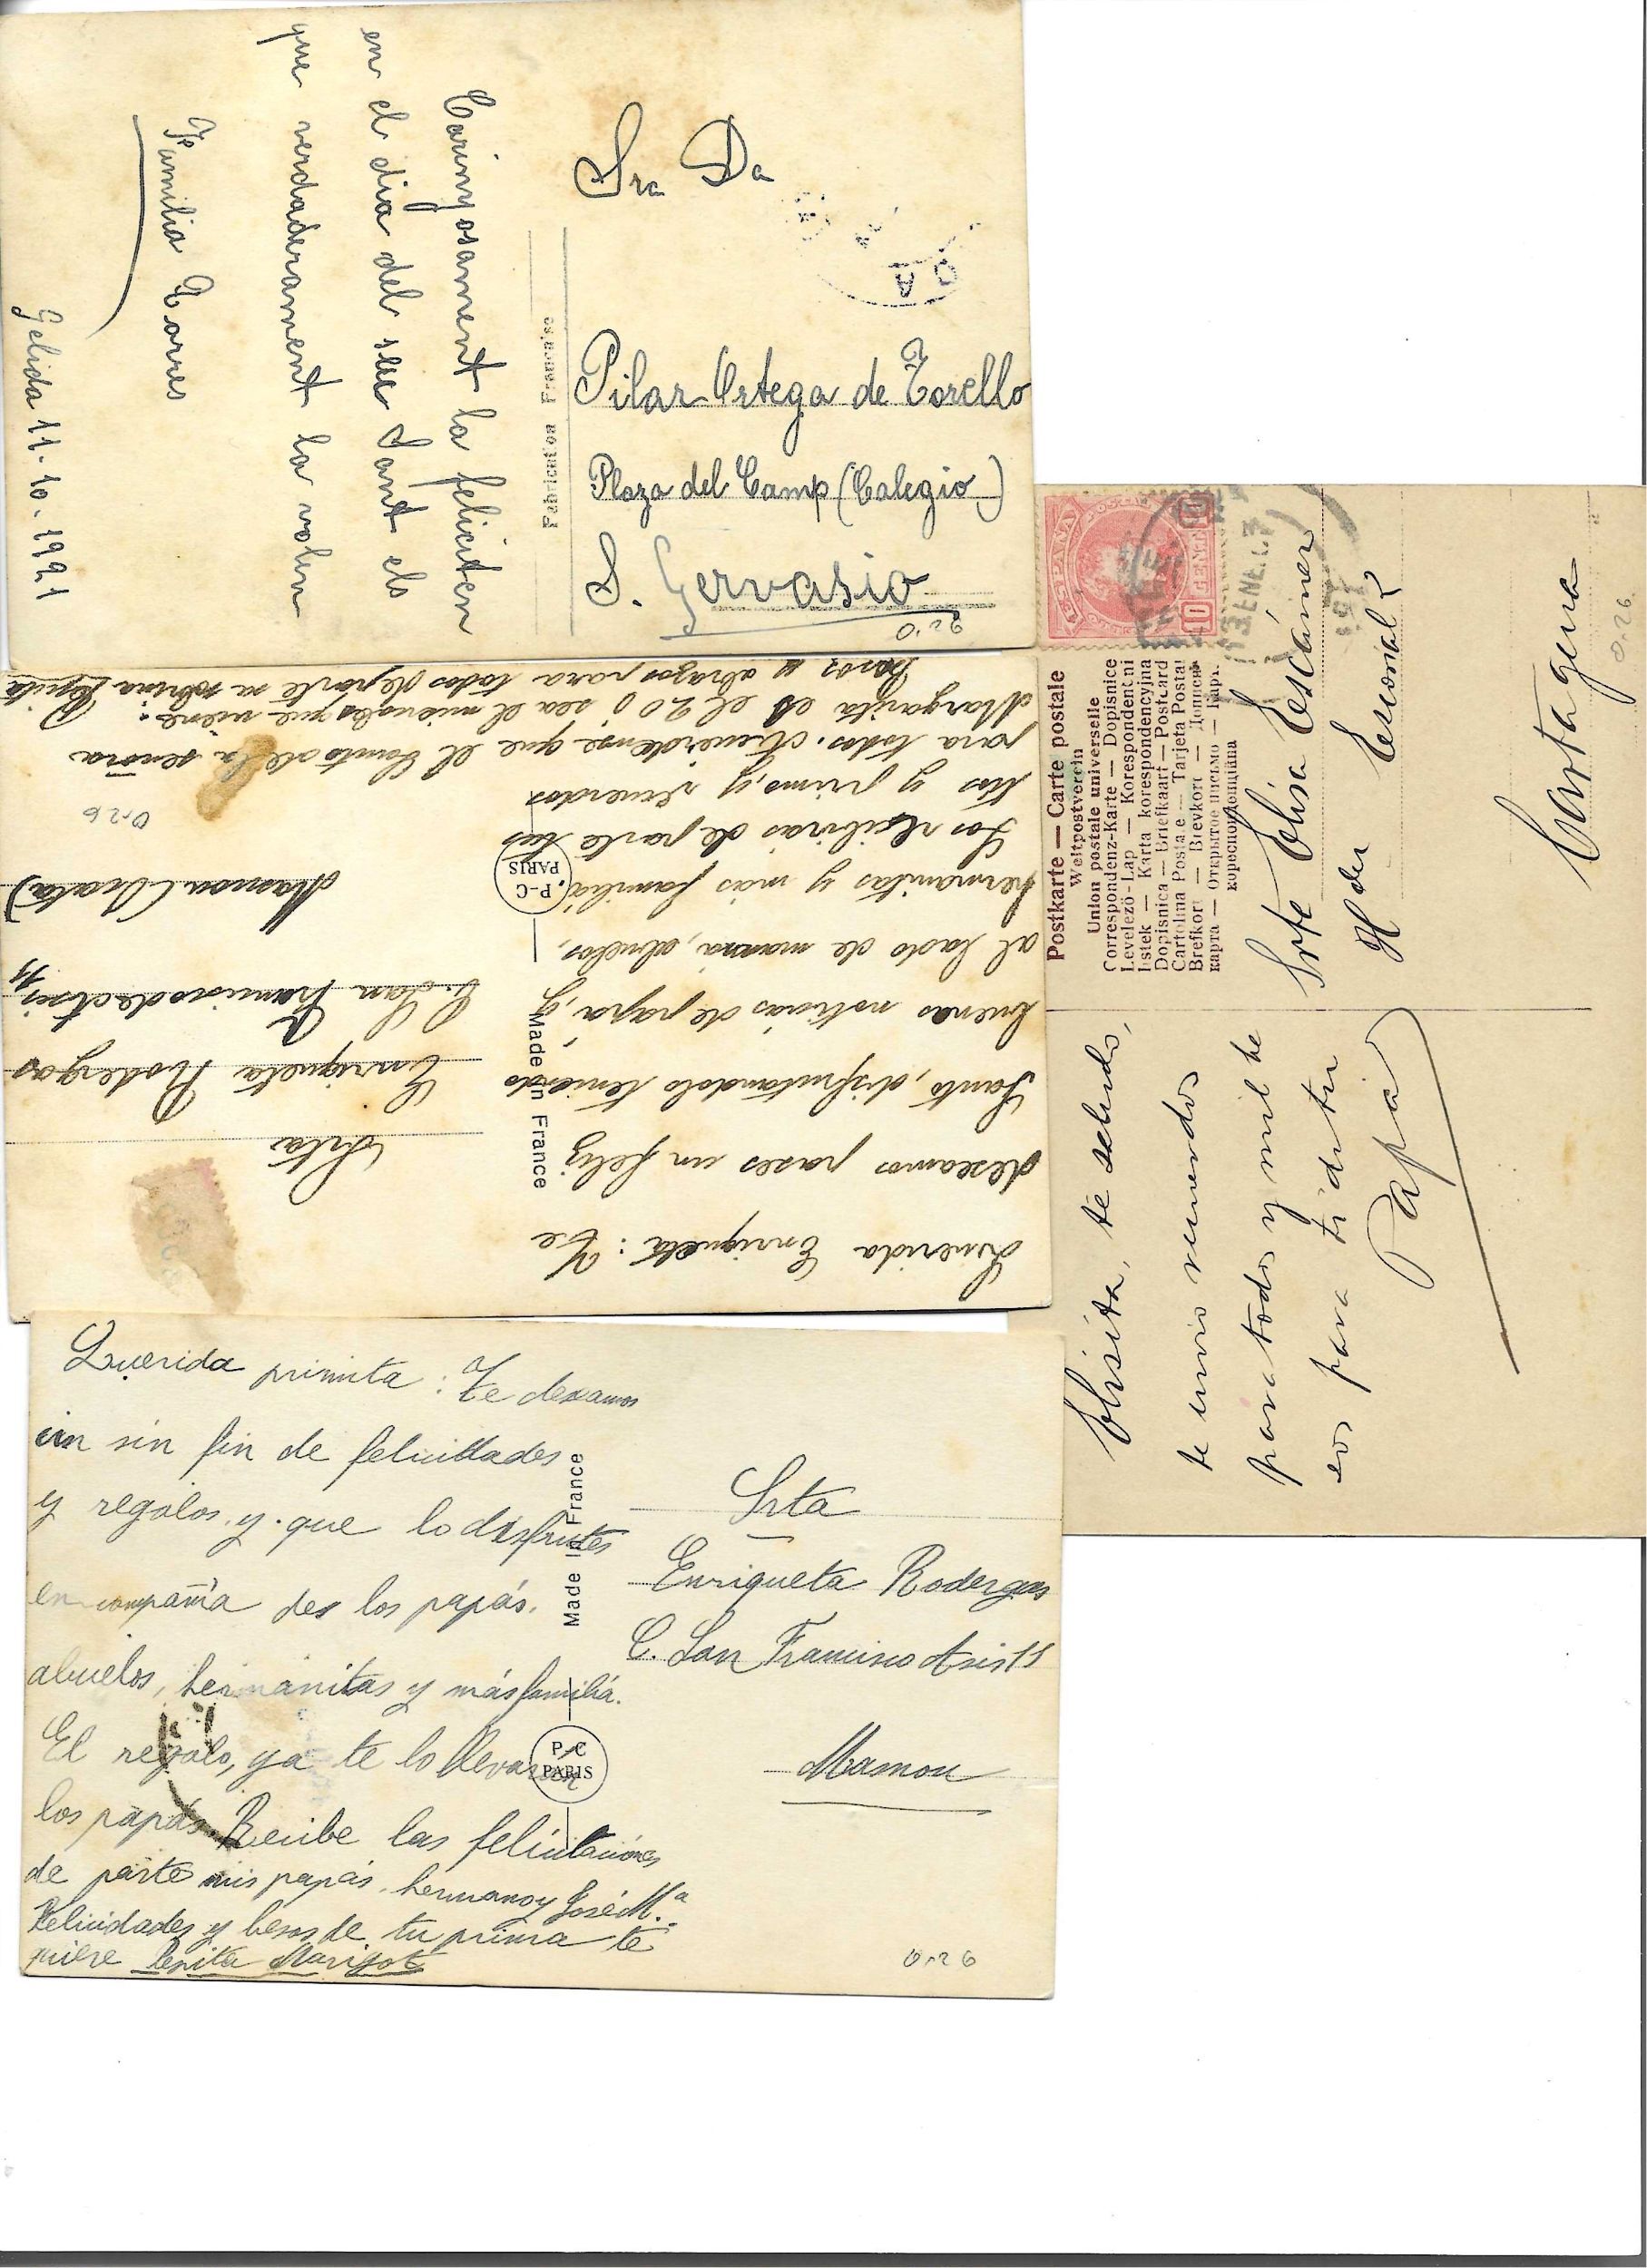 Carinyosament la feliciten
en el dia del seu Sant els
que verdaderament la volen
Familia Torres
Gelida 11-10-1921
Fabrication Française
Sra Da
Pilar Ortega de Torello
Plaza del Camp (Colegio)
S. Gervasio
0.26
Querida Enriqueta: Te
deseamos pases un feliz
Santo, disfrutandolo teniendo
buenas noticias de papá, y
al lado de mamá, abuelos,
hermanitas y más familia.
Los recibirás de parte tus
tios y primo, y recuerdos
para todos. Acuerdense que el Santo de la señora
Margarita es el 20 o sea el miercoles que viene.
Besos y abrazos para todos de parte su sobrina Pepita
Made in France
P-C
PARIS
Srta
Enriqueta Rodergas
C. San Francisco de Asis, 11
Masnou (Ocata)
0.26
Querida primita: Te deseamos
un sin fin de felicidades
y regalos y que lo disfrutes
en compañia de los papás,
abuelos, hermanitas y más familia.
El regalo, ya te lo llevaran
los papás. Recibe las felicitaciónes
de parte mis papás, hermano y José Mª.
Felicidades y besos de tu prima te
quiere Pepita Marigot
Made in France
P-C
PARIS
Srta
Enriqueta Rodergas
C. San Francisco Asis 11
Masnou
0.26
Postkarte — Carte postale
Weltpostverein
Union postale universelle
Correspondenz-Karte — Dopisnice
Levelező-Lap — Korespondenční
lístek — Karta korespondencyjna
Dopisnica — Briefkaart — Postcard
Cartolina Postale — Tarjeta Postal
Brefkort — Brevkort — Дописна
карта — Открытое письмо — Карт.
кореспонденційна
ESPAÑA
10 CENT 10
13 ENE. 07
Elisita, te saludo,
te envio recuerdos
para todos y mil be
sos para ti de tu
Papá
Srta Elisa Escáner
Cartagena
0.26